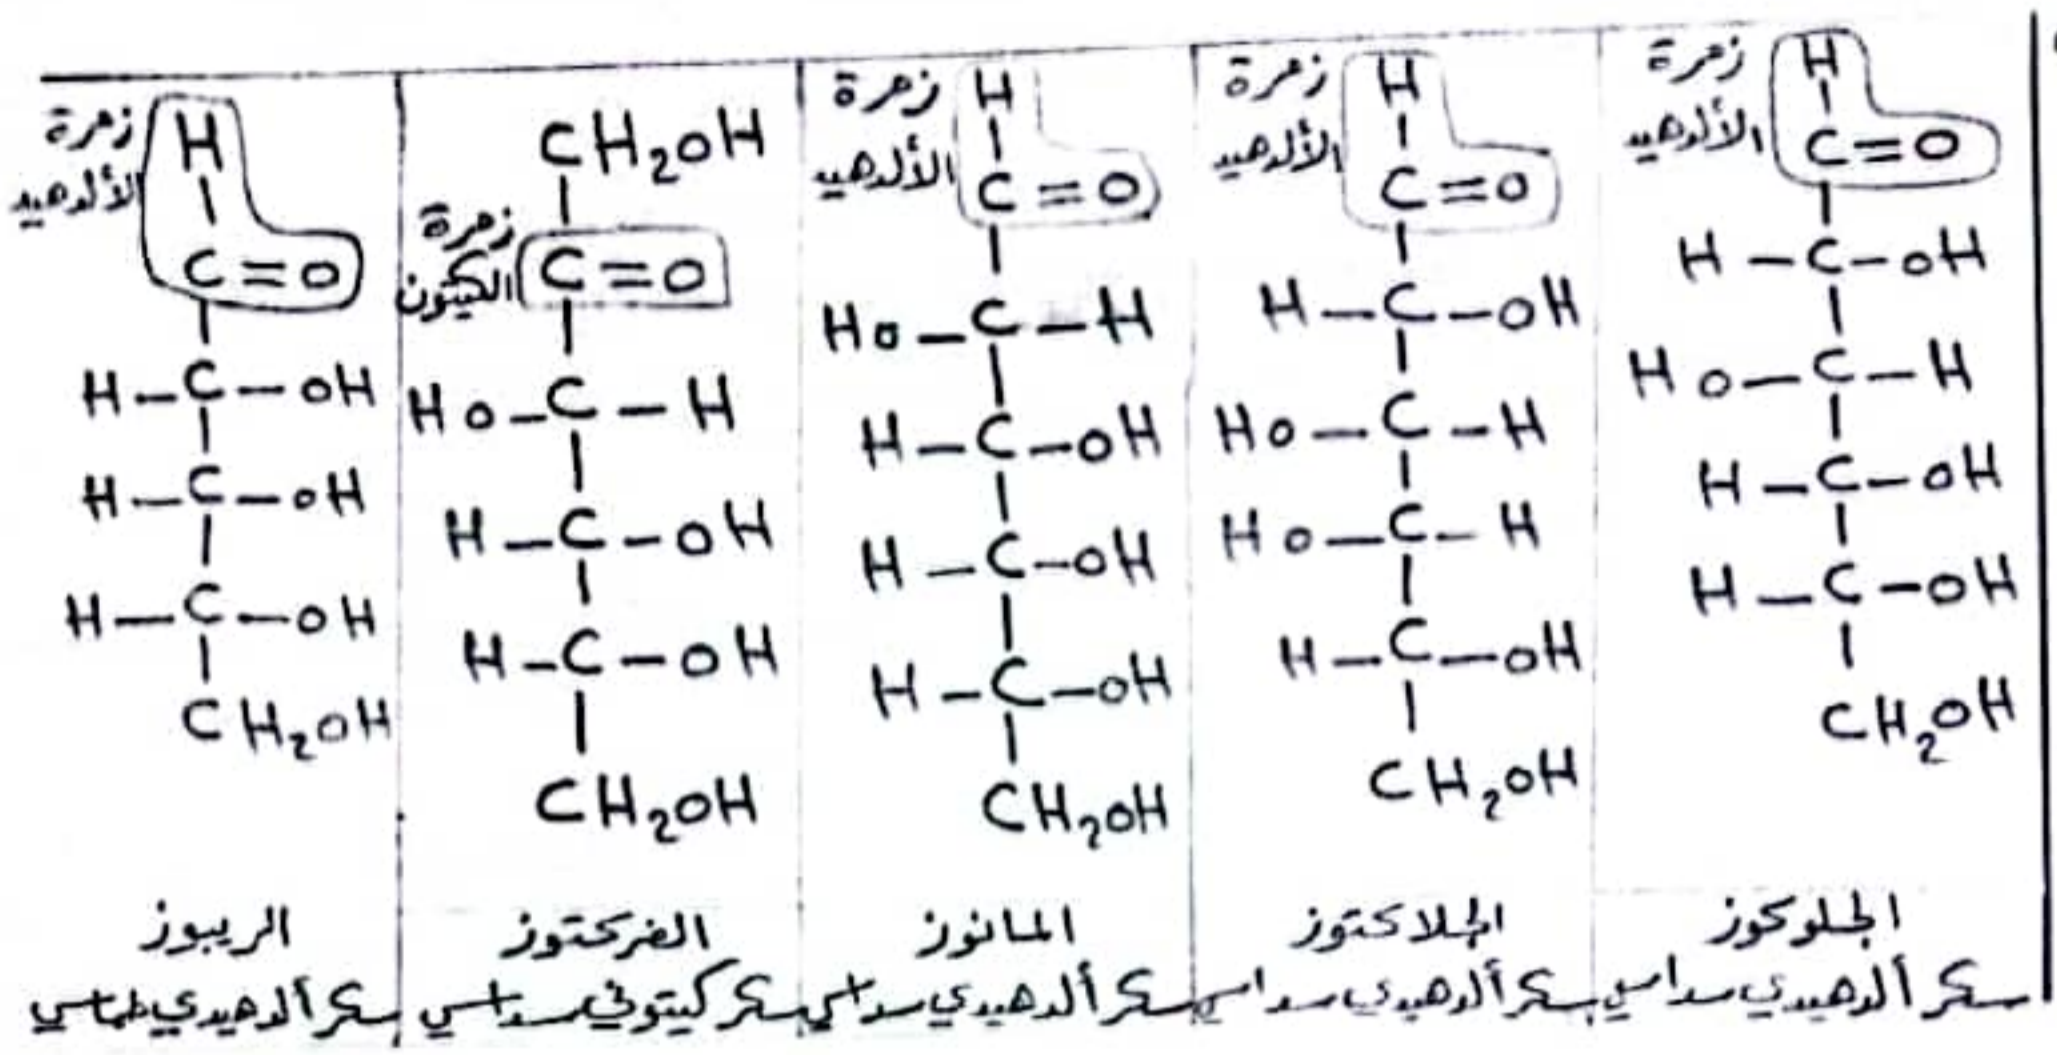 زمرة الألدهيد
H
C=O
H-C-OH
HO-C-H
H-C-OH
H-C-OH
CH₂OH
الجلوكوز
سكر ألدهيدي سداسي
زمرة الألدهيد
H
C=O
H-C-OH
HO-C-H
HO-C-H
H-C-OH
CH₂OH
الجلاكتوز
سكر ألدهيدي سداسي
زمرة الألدهيد
H
C=O
HO-C-H
H-C-OH
H-C-OH
H-C-OH
CH₂OH
المانوز
سكر ألدهيدي سداسي
CH₂OH
زمرة الكيتون
C=O
HO-C-H
H-C-OH
H-C-OH
CH₂OH
الفركتوز
سكر كيتوني سداسي
زمرة الألدهيد
H
C=O
H-C-OH
H-C-OH
H-C-OH
CH₂OH
الريبوز
سكر ألدهيدي خماسي